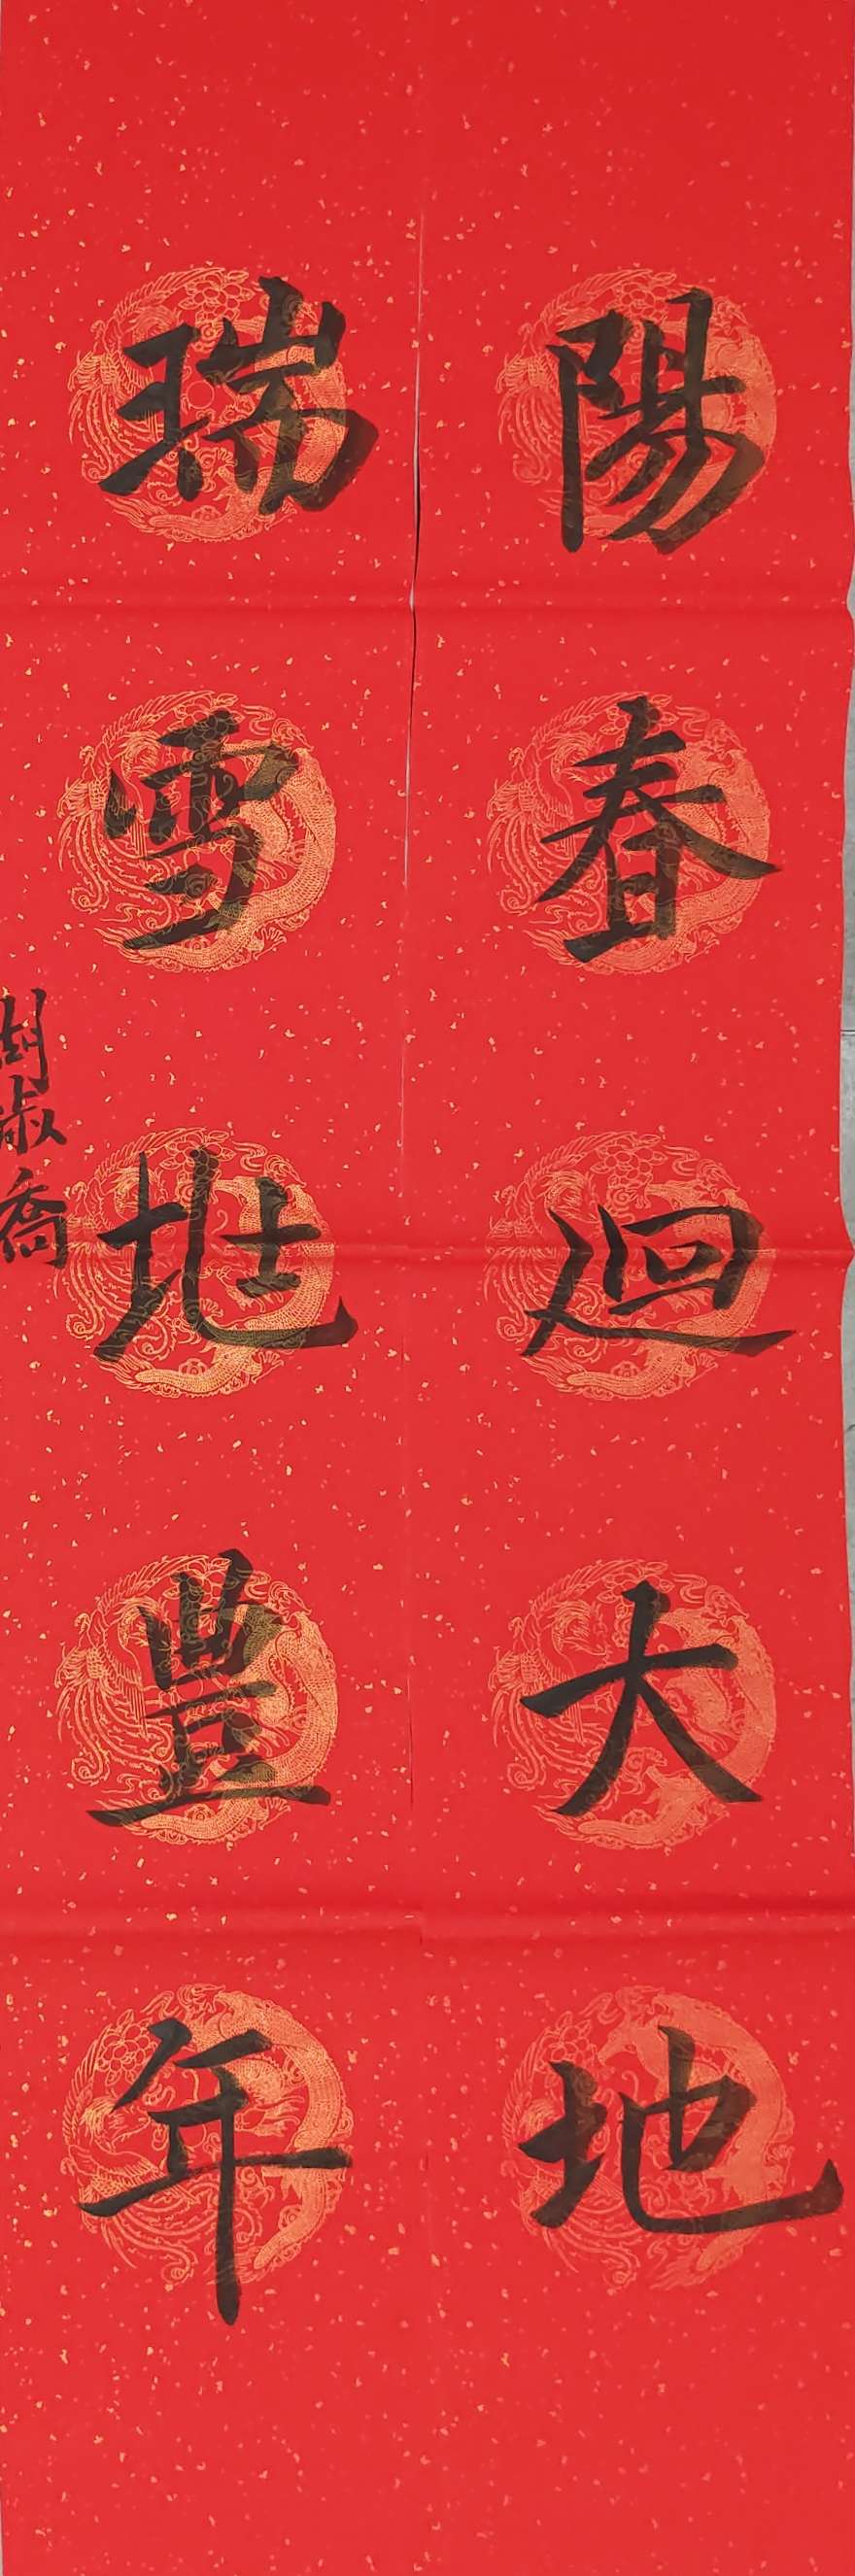 陽春迴大地
瑞雪兆豐年
胡淑喬